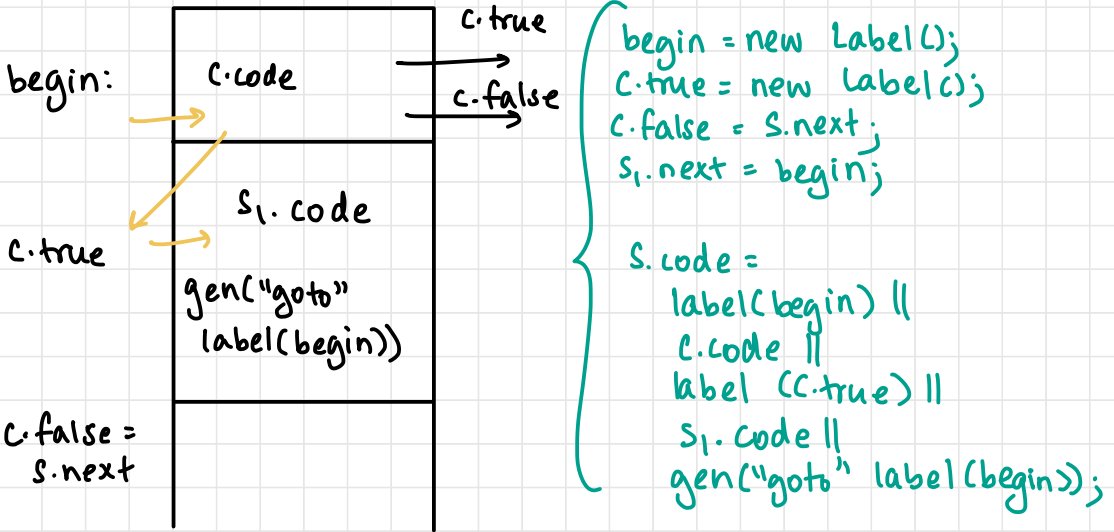 begin:
C.code
C.true
C.false
S₁.code
C.true
gen("goto"
label(begin))
C.false =
S.next
begin = new Label();
C.true = new Label();
C.false = S.next;
S₁.next = begin;
S.code =
label(begin) ||
C.code ||
label (C.true) ||
S₁.code ||
gen("goto" label(begin));